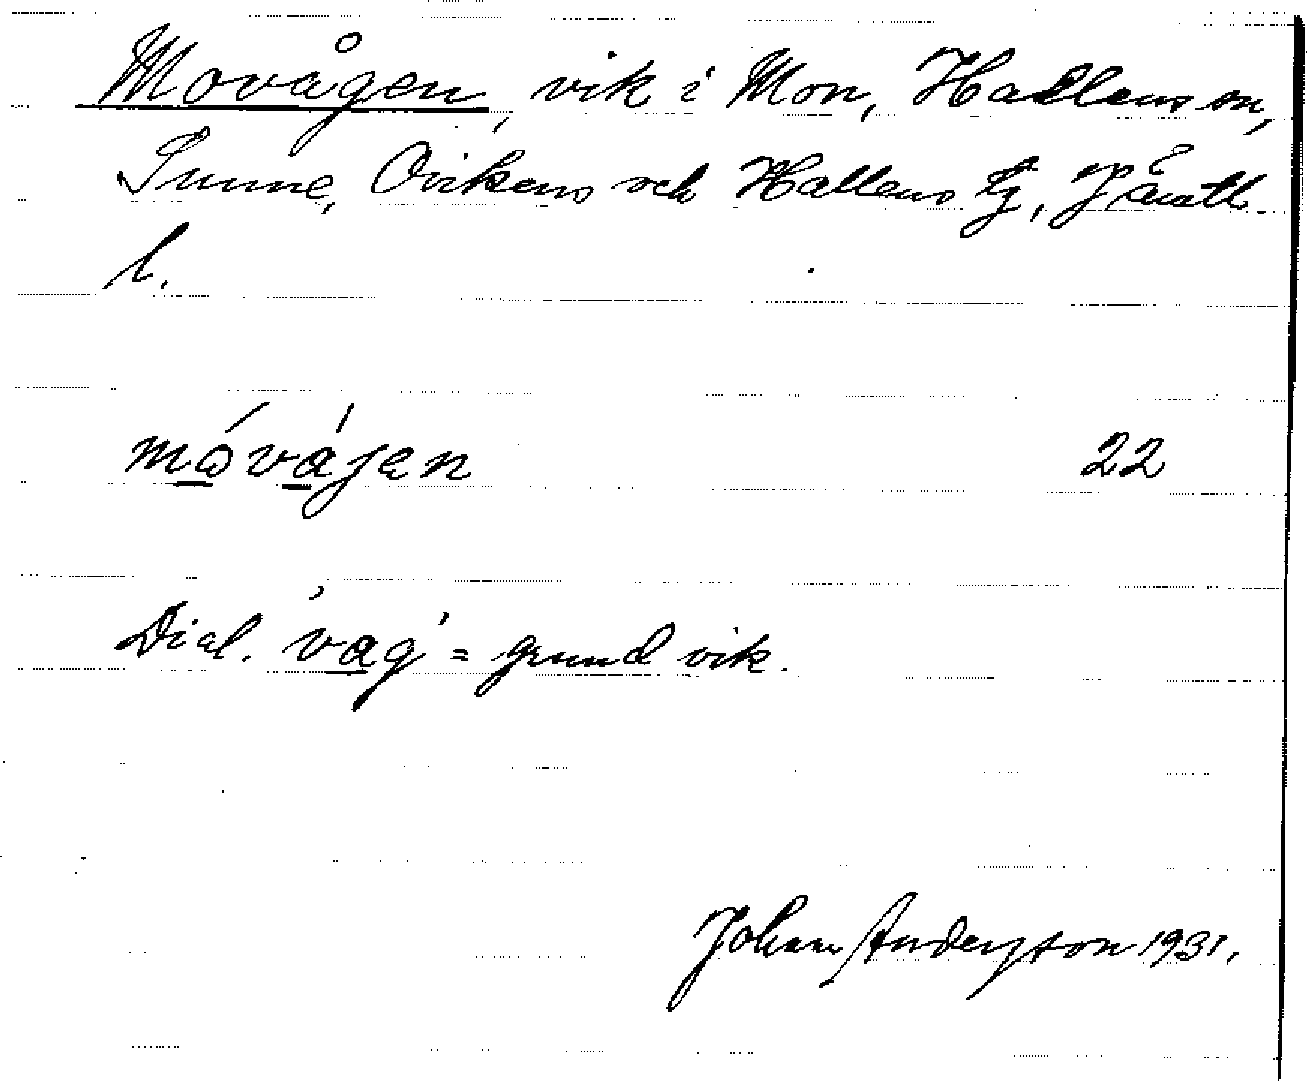 Movågen, vik i Mon, Hallens sn,
Sunne, Ovikens och Hallens tg, Jämtl.
l.
móvájen 22
Dial. våg = grund vik.
Johan Anderzson 1931.